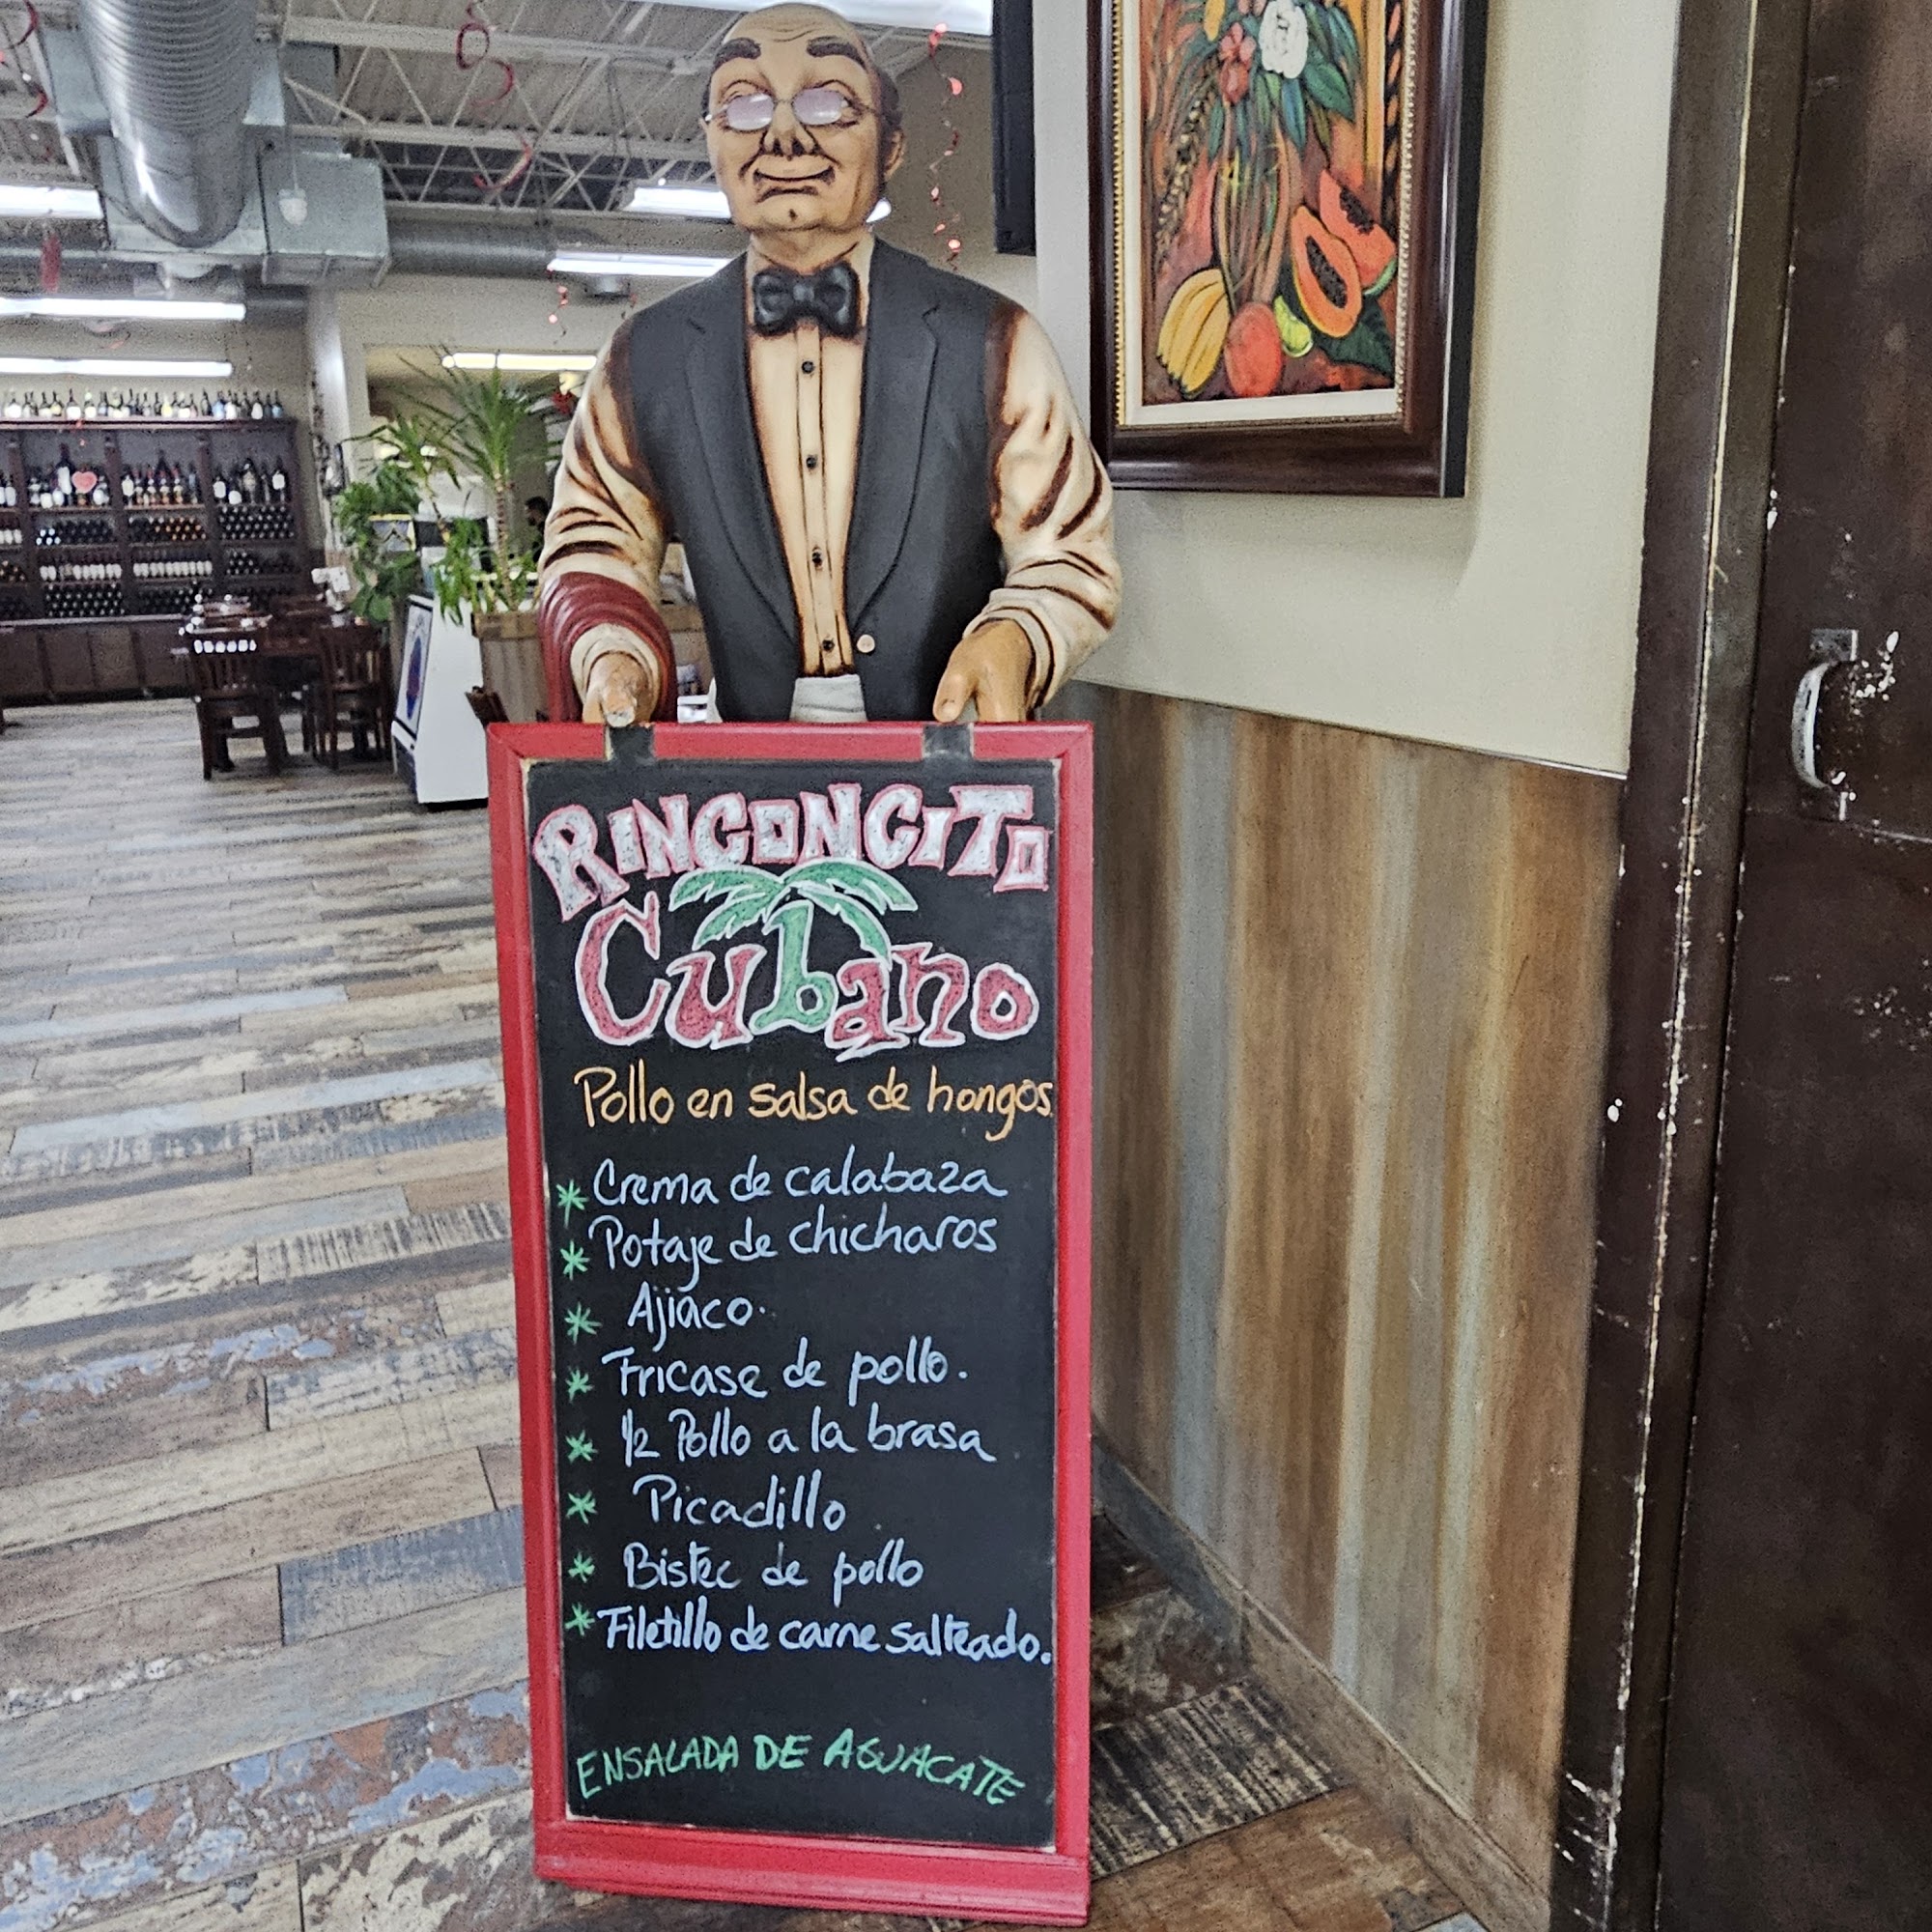 RINCONCITO
Cubano
Pollo en salsa de hongos
* Crema de calabaza
* Potaje de chicharos
* Ajiaco.
* Fricase de pollo.
* 1/2 Pollo a la brasa
* Picadillo
* Bistec de pollo
* Filetillo de carne salteado.
ENSALADA DE AGUACATE